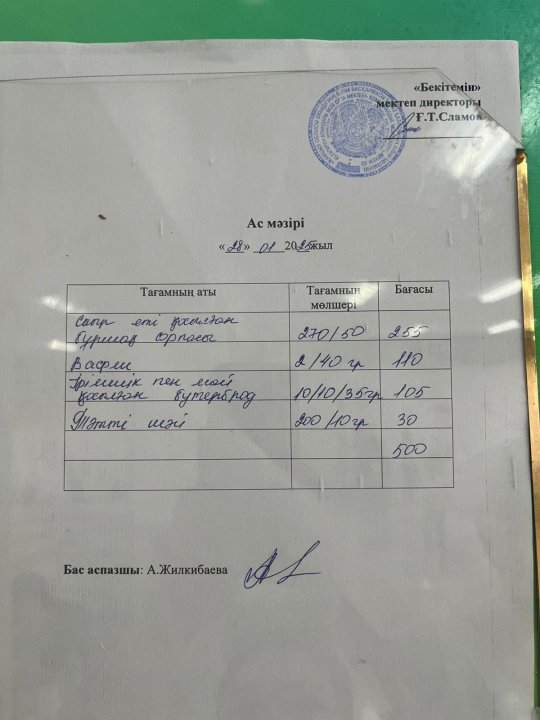 «Бекітемін»
мектеп директоры
Ғ.Т.Сламов
Ас мәзірі
«28» 01 2025жыл
Тағамның аты Тағамның мөлшері Бағасы
Сиыр еті қосылған
бұршақ сорпасы 270/50 255
Вафли 2/40 гр 110
Ірімшік пен май
қосылған бутерброд 10/10/35гр 105
Тәтті шәй 200/10 гр 30
500
Бас аспазшы: А.Жилкибаева